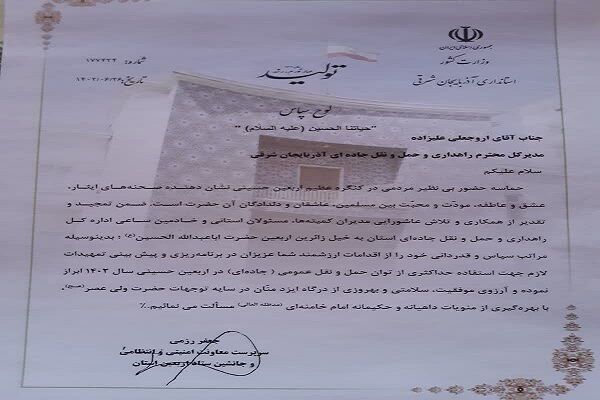 جمهوری اسلامی ایران
وزارت کشور
استانداری آذربایجان شرقی
تولید
شماره: ۱۷۷۴۲۴
تاریخ: ۱۴۰۲/۰۶/۲۶
لوح سپاس
"حیاتنا الحسین (علیه السلام)"
جناب آقای اروجعلی علیزاده
مدیرکل محترم راهداری و حمل و نقل جاده ای آذربایجان شرقی
سلام علیکم
حماسه حضور بی نظیر مردمی در کنگره عظیم اربعین حسینی نشان دهنده صحنه‌های ایثار،
عشق و عاطفه، مودّت و محبّت بین مسلمین، عاشقان و دلدادگان آن حضرت است. ضمن تمجید و
تقدیر از همکاری و تلاش عاشورایی مدیران کمیته‌ها، مسئولان استانی و خادمین ساعی اداره کل
راهداری و حمل و نقل جاده‌ای استان به خیل زائرین اربعین حضرت اباعبدالله الحسین(ع)؛ بدینوسیله
مراتب سپاس و قدردانی خود را از اقدامات ارزشمند شما عزیزان در برنامه‌ریزی و پیش بینی تمهیدات
لازم جهت استفاده حداکثری از توان حمل و نقل عمومی (جاده‌ای) در اربعین حسینی سال ۱۴۰۲ ابراز
نموده و آرزوی موفقیت، سلامتی و بهروزی از درگاه ایزد منّان در سایه توجهات حضرت ولی عصر(عج)،
با بهره‌گیری از منویات داهیانه و حکیمانه امام خامنه‌ای (مدظله العالی) مسألت می نمائیم.٪
جعفر رزمی
سرپرست معاونت امنیتی و انتظامی
و جانشین ستاد اربعین استان